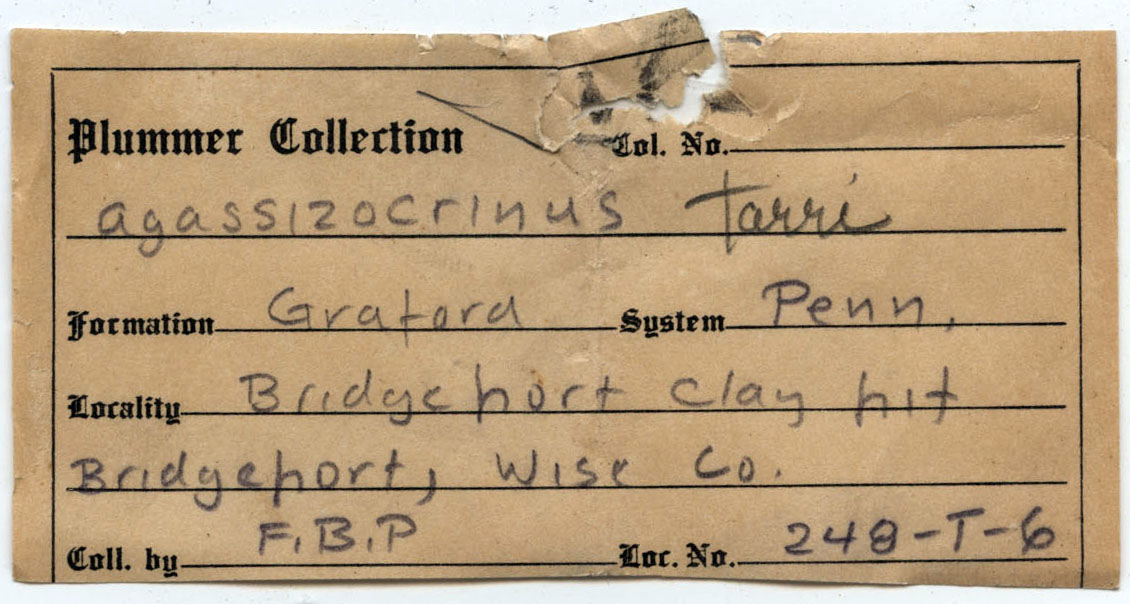 Plummer Collection Col. No.
agassizocrinus tarri
Formation Graford System Penn.
Locality Bridgeport Clay pit
Bridgeport, Wise Co.
Coll. by F.B.P Loc. No. 248-T-6